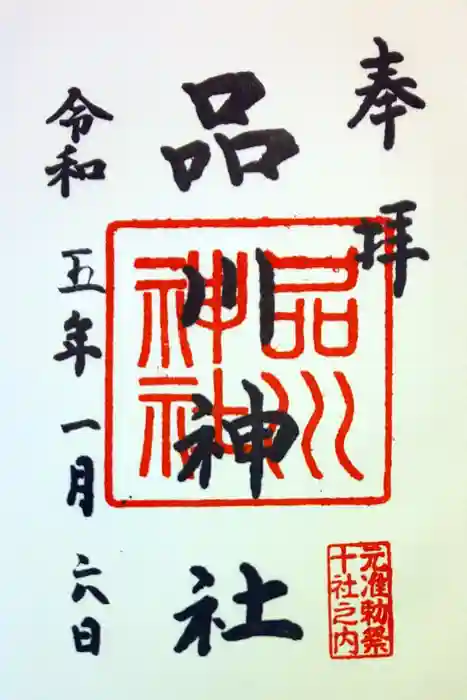 奉拝
品川神社
令和五年一月六日
品川
神社
元准勅祭
十社之内